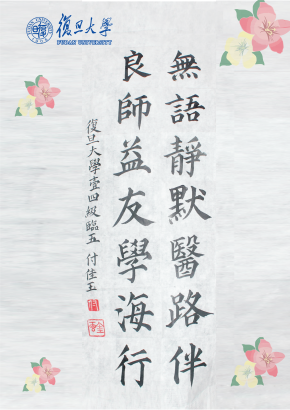 復旦大學
FUDAN UNIVERSITY
無語靜默醫路伴
良師益友學海行
復旦大學壹四級臨五 付佳玉